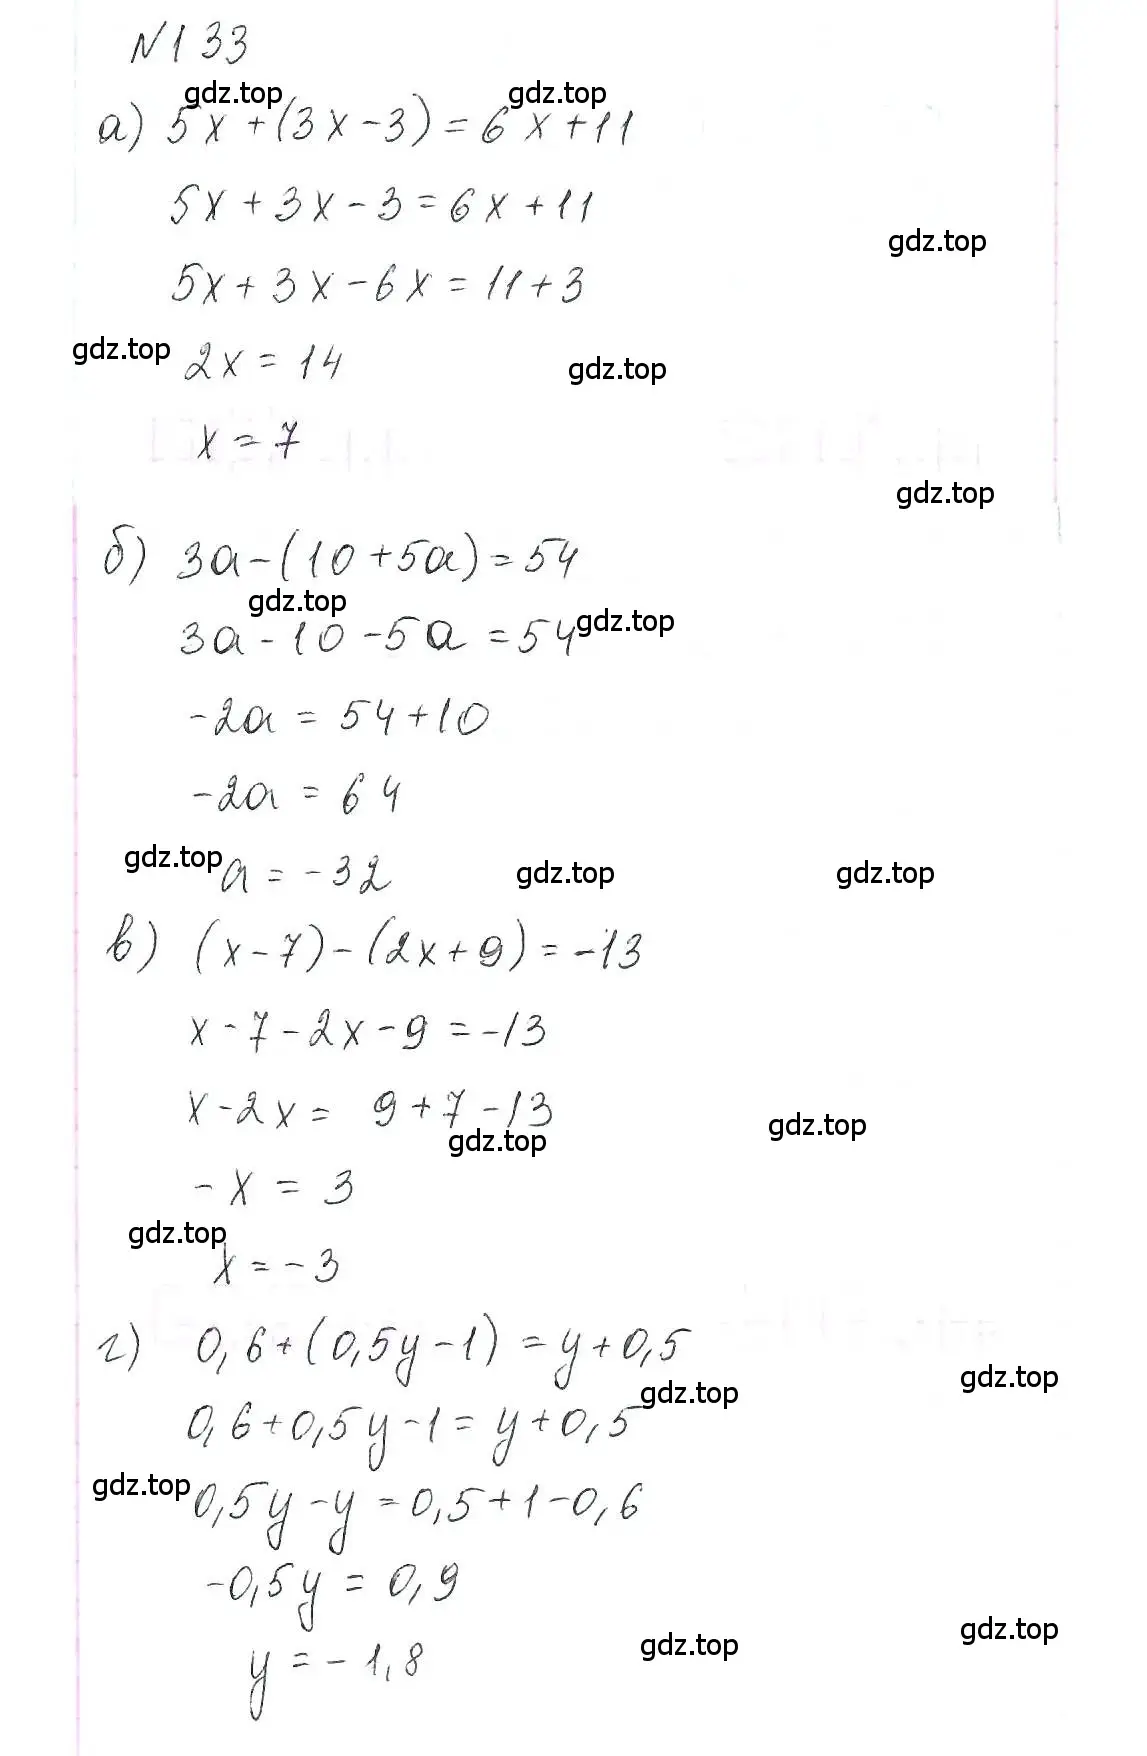 №133
gdz.top gdz.top
а) 5x+(3x-3)=6x+11
5x+3x-3=6x+11
gdz.top
5x+3x-6x=11+3
gdz.top 2x=14 gdz.top
x=7
gdz.top
б) 3a-(10+5a)=54
gdz.top gdz.top
3a-10-5a=54
-2a=54+10
-2a=64
gdz.top a=-32 gdz.top gdz.top
в) (x-7)-(2x+9)=-13
x-7-2x-9=-13
x-2x= 9+7-13
gdz.top gdz.top
-x=3
gdz.top
x=-3
г) 0,6+(0,5y-1)=y+0,5
gdz.top gdz.top
0,6+0,5y-1=y+0,5
gdz.top 0,5y-y=0,5+1-0,6
-0,5y=0,9
gdz.top gdz.top
y=-1,8